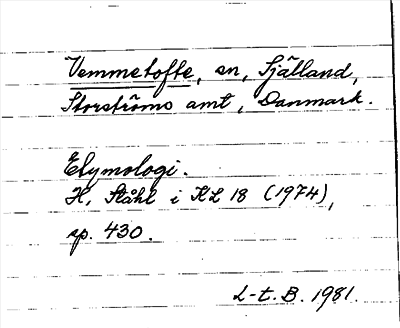 Vemmetofte, sn, Själland,
Storströms amt, Danmark.
Etymologi.
H. Ståhl i KL 18 (1974),
sp. 430.
L-t.B. 1981.